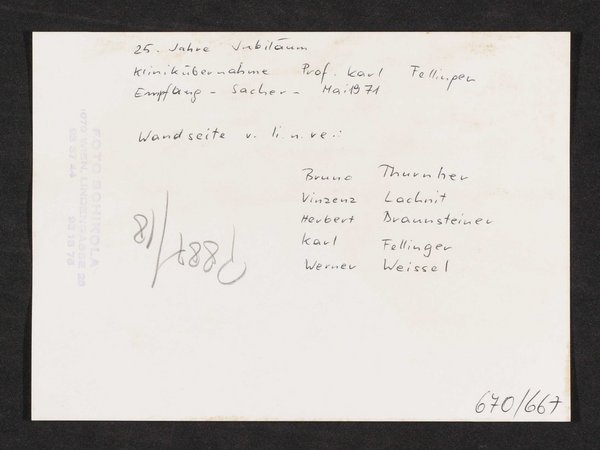 25. Jahre Jubiläum
Klinikübernahme Prof. Karl Fellinger
Empfang - Sacher - Mai 1971
Wandseite v. li. n. re.:
Bruno Thurnher
Vinzenz Lachnit
Herbert Braunsteiner
Karl Fellinger
Werner Weissel
FOTO SCHIKOLA
1070 WIEN, LINDENGASSE
/18
670/667